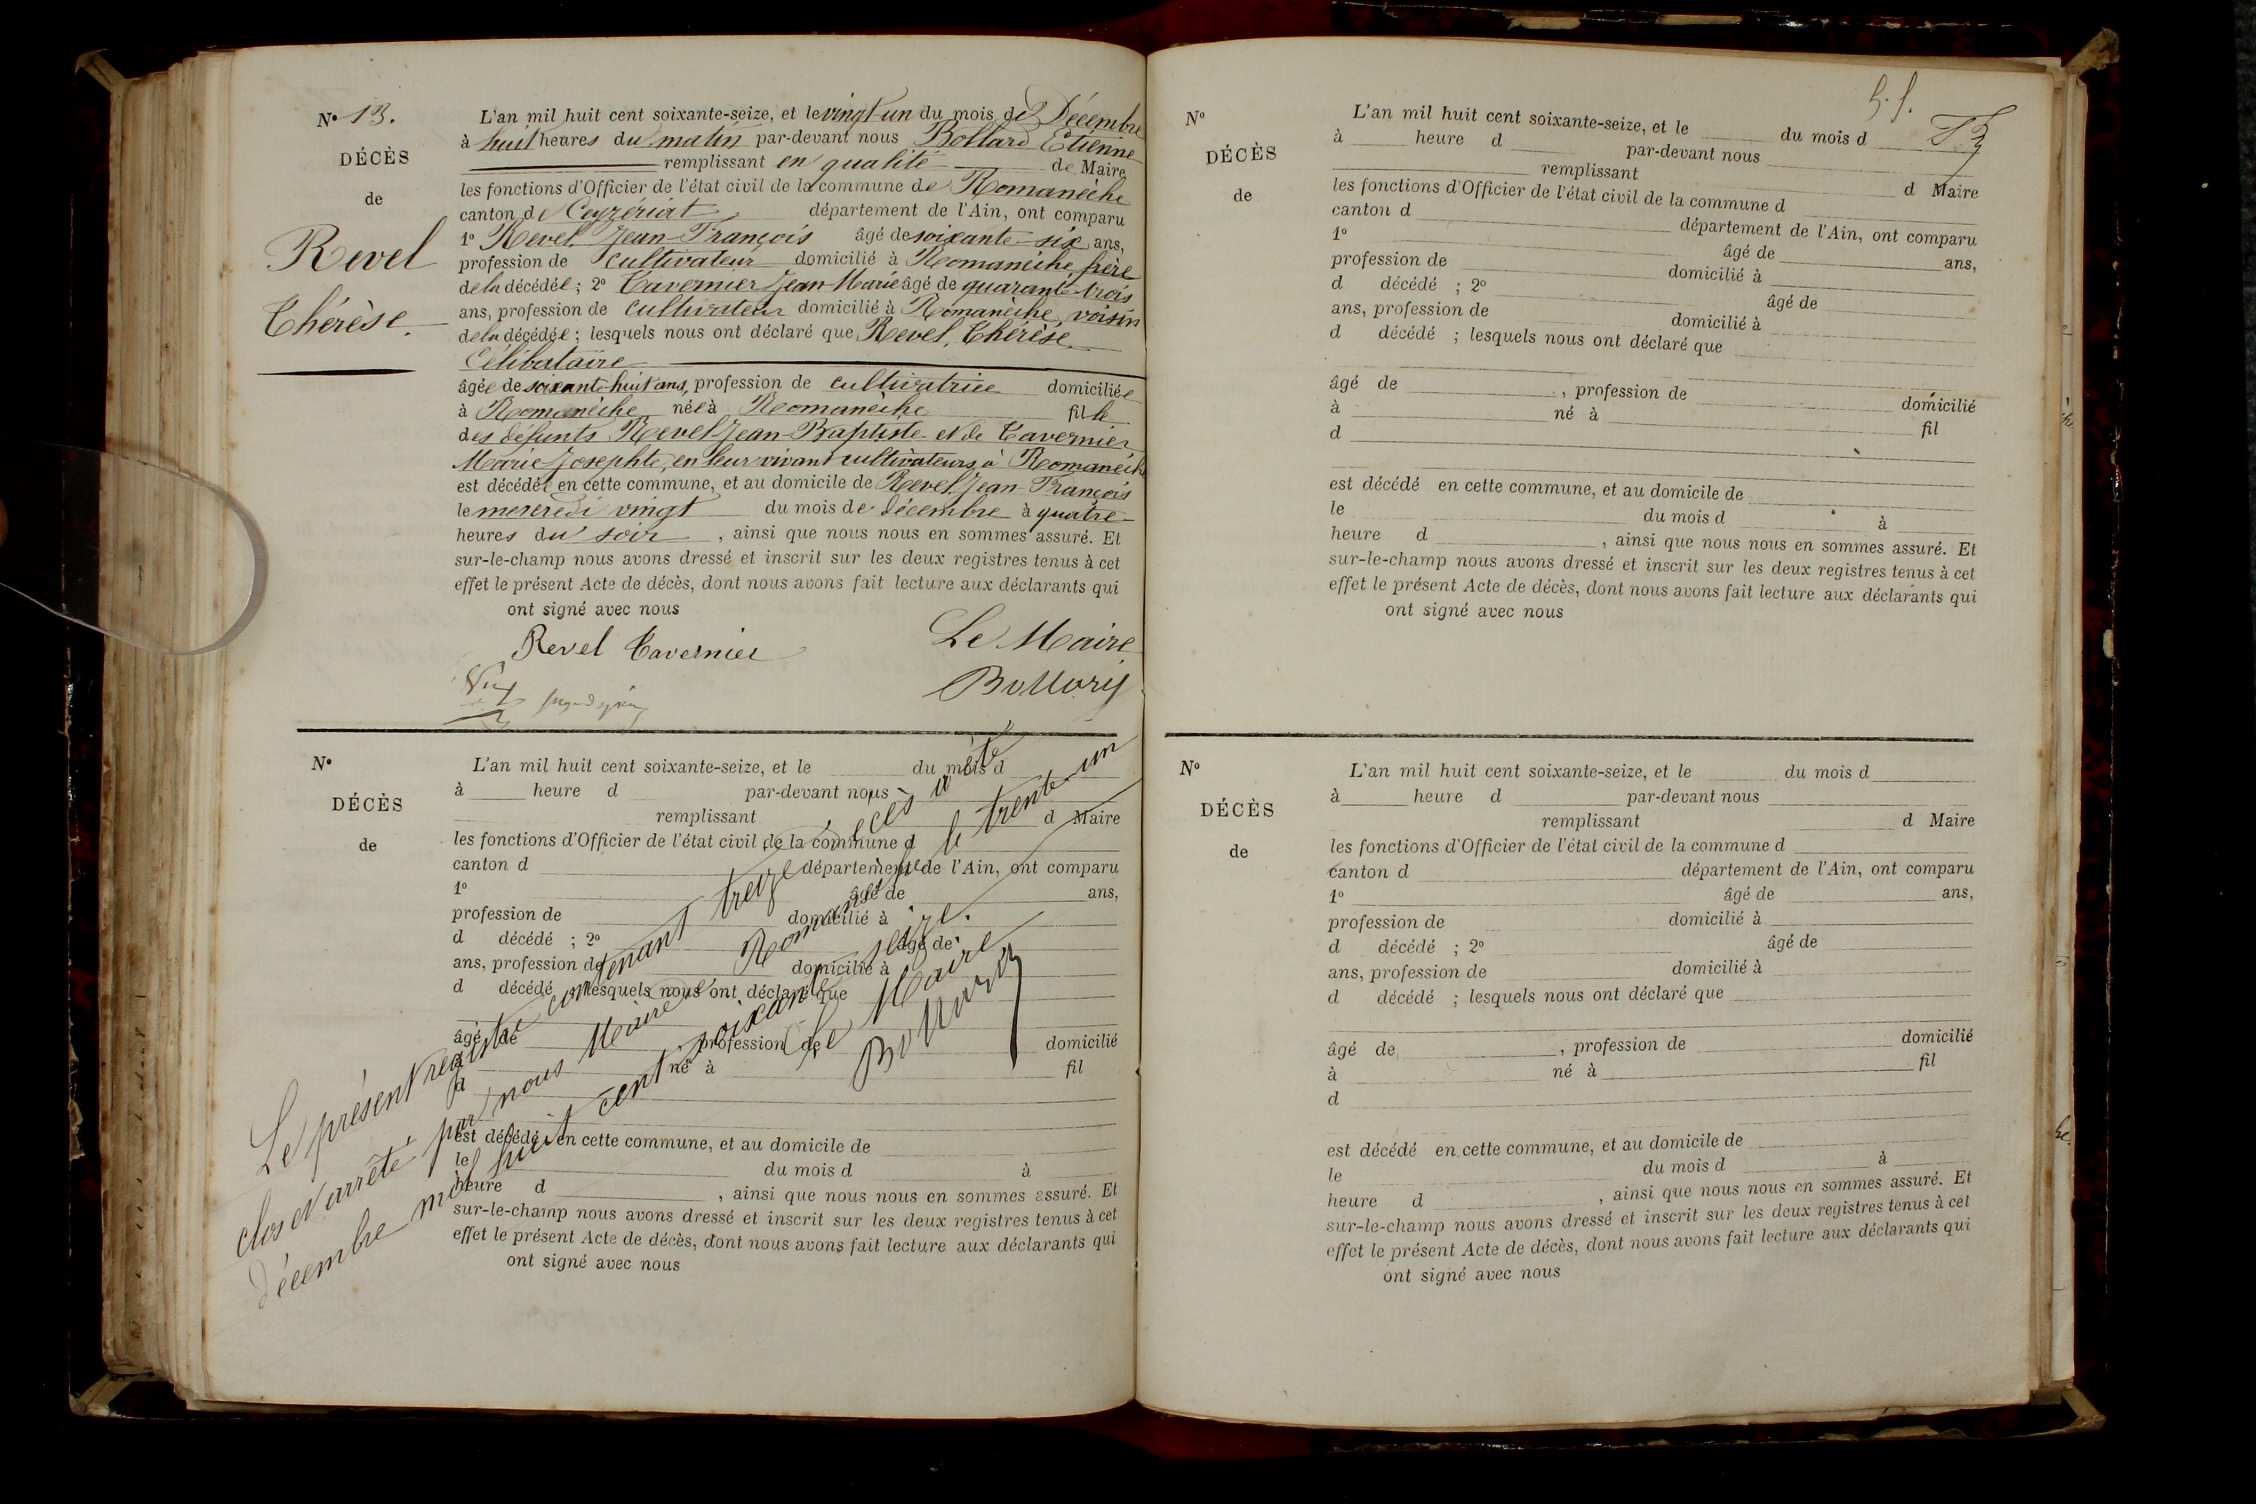 N° 13.
DÉCÈS
de
Revel
Thérèse.
L'an mil huit cent soixante-seize, et le vingt-un du mois de Décembre
à huit heures du matin par-devant nous Bollard Etienne
remplissant en qualité de Maire
les fonctions d'Officier de l'état civil de la commune de Romanèche
canton de Ceyzériat département de l'Ain, ont comparu
1° Revel Jean François âgé de soixante-six ans,
profession de cultivateur domicilié à Romanèche, frère
de la décédée ; 2° Tavernier Jean-Marie âgé de quarante-trois
ans, profession de cultivateur domicilié à Romanèche, voisin
de la décédée ; lesquels nous ont déclaré que Revel, Thérèse
Célibataire
âgée de soixante-huit ans, profession de cultivatrice domiciliée
à Romanèche née à Romanèche fille
des défunts Revel Jean-Baptiste et de Tavernier
Marie Josephte, en leur vivant cultivateurs à Romanèche
est décédée en cette commune, et au domicile de Revel Jean-François
le mercredi vingt du mois de décembre à quatre
heures du soir , ainsi que nous nous en sommes assuré. Et
sur-le-champ nous avons dressé et inscrit sur les deux registres tenus à cet
effet le présent Acte de décès, dont nous avons fait lecture aux déclarants qui
ont signé avec nous
Revel Tavernier Le Maire
N°
DÉCÈS
de
L'an mil huit cent soixante-seize, et le du mois d
à heure d par-devant nous
remplissant d Maire
les fonctions d'Officier de l'état civil de la commune d
canton d département de l'Ain, ont comparu
1° âgé de ans,
profession de domicilié à
d décédé ; 2° âgé de
ans, profession de domicilié à
d décédé ; lesquels nous ont déclaré que
âgé de profession de domicilié
à né à fil
d
est décédé en cette commune, et au domicile de
le du mois d à
heure d , ainsi que nous nous en sommes assuré. Et
sur-le-champ nous avons dressé et inscrit sur les deux registres tenus à cet
effet le présent Acte de décès, dont nous avons fait lecture aux déclarants qui
ont signé avec nous
Le présent registre contenant treize décès a été
clos et arrêté par nous Maire de Romanèche le trente-un
décembre mil huit cent soixante-seize.
Le Maire
N°
DÉCÈS
de
L'an mil huit cent soixante-seize, et le du mois d
à heure d par-devant nous
remplissant d Maire
les fonctions d'Officier de l'état civil de la commune d
canton d département de l'Ain, ont comparu
1° âgé de ans,
profession de domicilié à
d décédé ; 2° âgé de
ans, profession de domicilié à
d décédé ; lesquels nous ont déclaré que
âgé de , profession de domicilié
à né à fil
d
est décédé en cette commune, et au domicile de
le du mois d à
heure d , ainsi que nous nous en sommes assuré. Et
sur-le-champ nous avons dressé et inscrit sur les deux registres tenus à cet
effet le présent Acte de décès, dont nous avons fait lecture aux déclarants qui
ont signé avec nous
N°
DÉCÈS
de
L'an mil huit cent soixante-seize, et le du mois d
à heure d par-devant nous
remplissant d Maire
les fonctions d'Officier de l'état civil de la commune d
canton d département de l'Ain, ont comparu
1° âgé de ans,
profession de domicilié à
d décédé ; 2° âgé de
ans, profession de domicilié à
d décédé ; lesquels nous ont déclaré que
âgé de , profession de domicilié
à né à fil
d
est décédé en cette commune, et au domicile de
le du mois d à
heure d , ainsi que nous nous en sommes assuré. Et
sur-le-champ nous avons dressé et inscrit sur les deux registres tenus à cet
effet le présent Acte de décès, dont nous avons fait lecture aux déclarants qui
ont signé avec nous